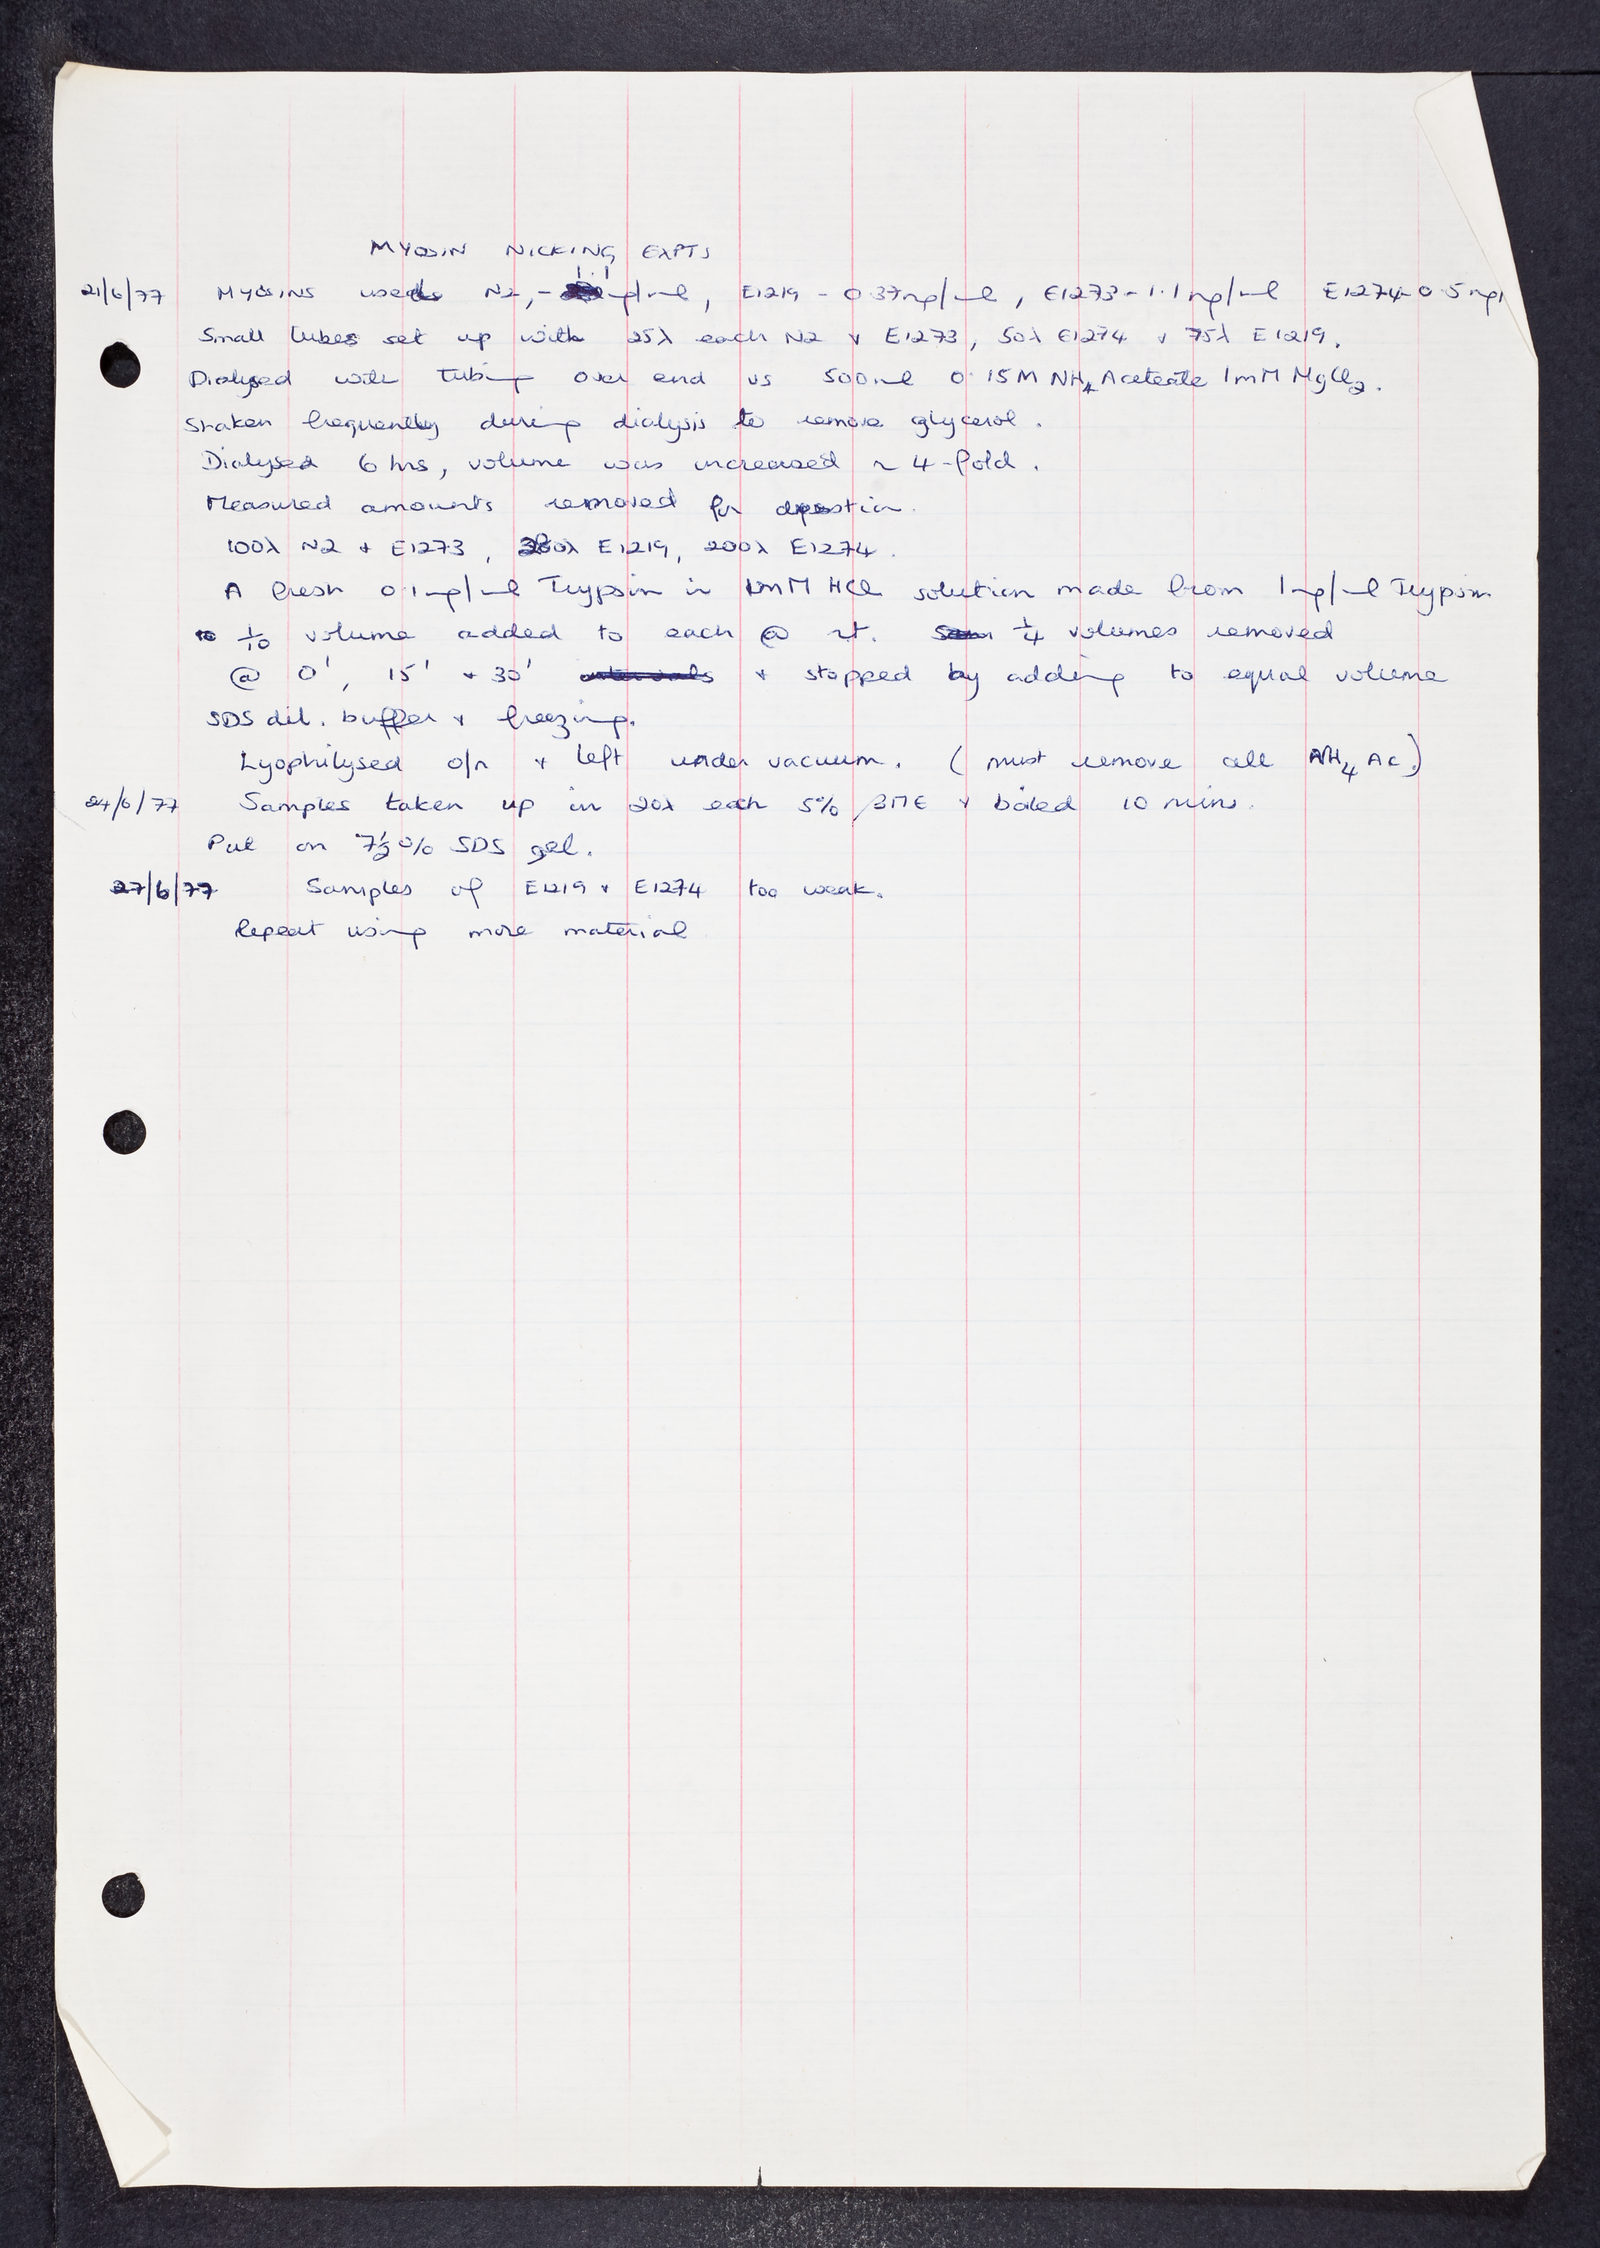 MYOSIN NICKING EXPTS
21/6/77 MYOSINS used N2, - 1.1 mg/ml, E1219 - 0.37mg/ml, E1273 - 1.1mg/ml E1274 - 0.5mg/
Small tubes set up with 25λ each N2 + E1273, 50λ E1274 + 75λ E1219.
Dialysed with tubing over end vs 500ml 0.15M NH4 Aceteate 1mM MgCl2.
Shaken frequently during dialysis to remove glycerol.
Dialysed 6 hrs, volume was increased ~ 4-fold.
Measured amounts removed for digestion.
100λ N2 + E1273, E1219, 200λ E1274.
A fresh 0.1mg/ml Trypsin in 1mM HCl solution made from 1mg/ml Trypsin
1/10 volume added to each @ rt. 1/4 volumes removed
@ 0', 15' + 30' intervals + stopped by adding to equal volume
SDS dil. buffer + freezing.
Lyophilysed o/n + left under vacuum. (must remove all NH4 Ac.)
24/6/77 Samples taken up in 20λ each 5% βME + boiled 10 mins.
Put on 7½% SDS gel.
27/6/77 Samples of E1219 + E1274 too weak.
Repeat using more material